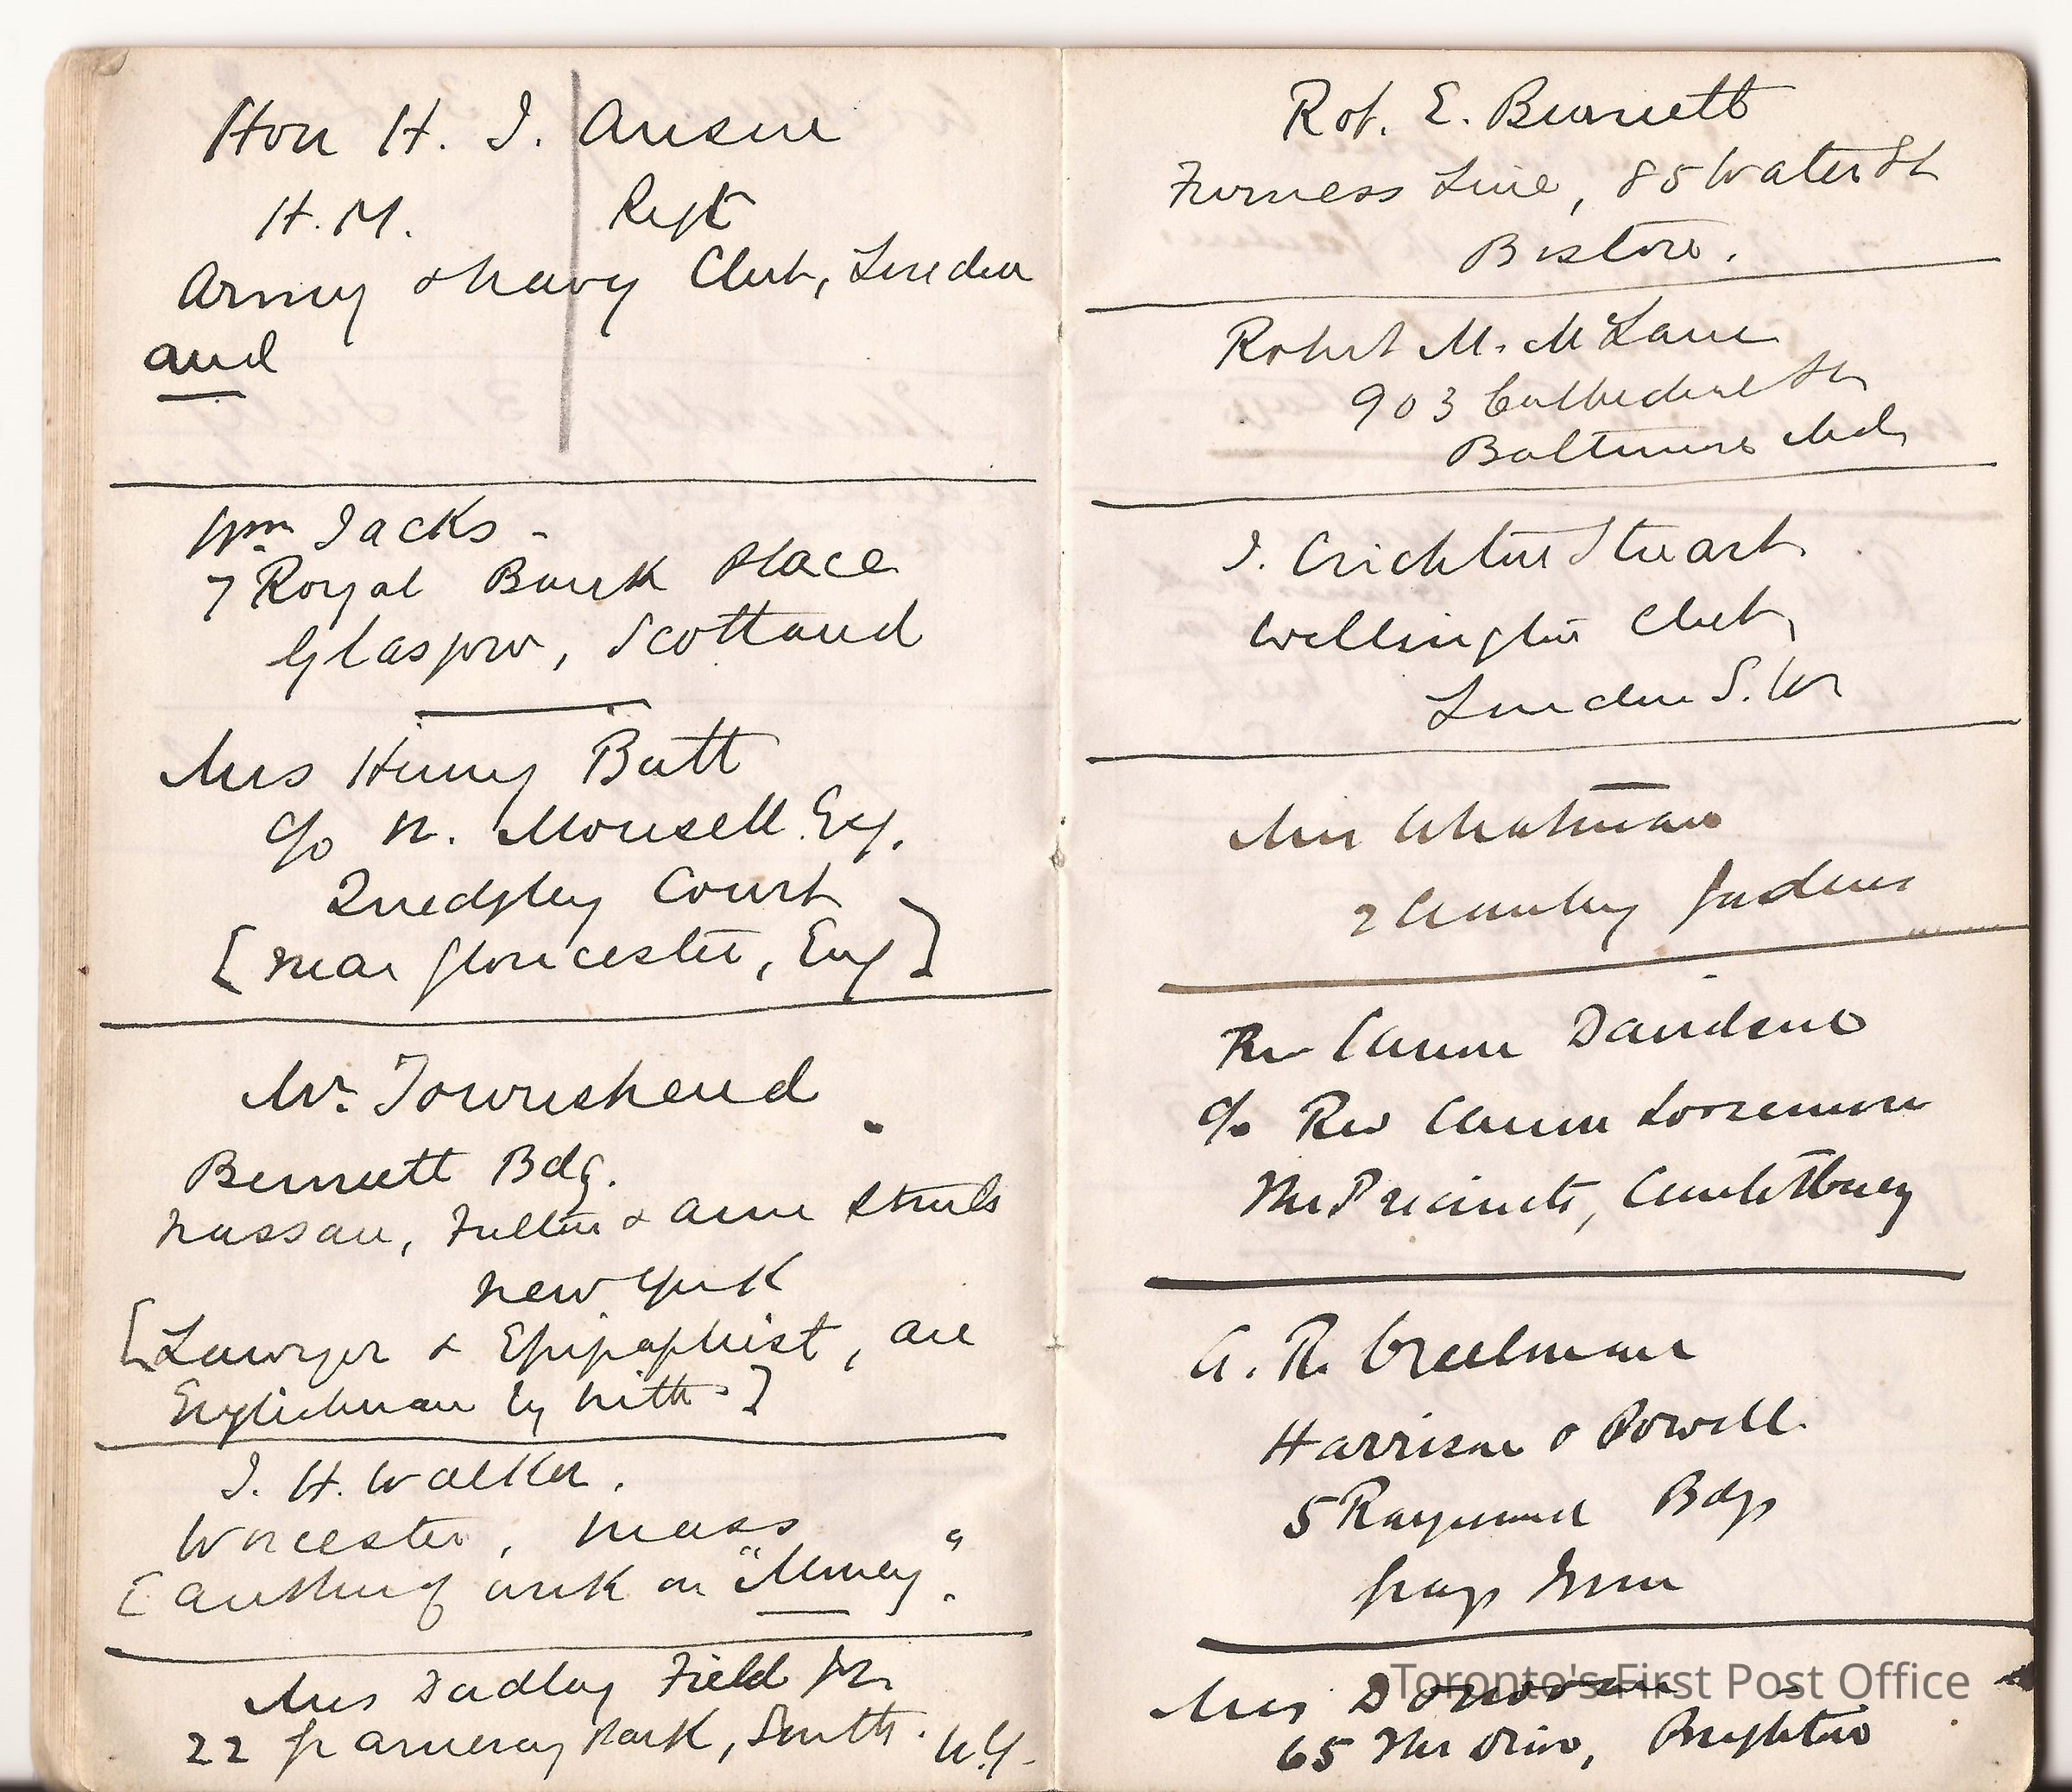 Hon H. J. Anson
H.M. Regt
Army & Navy Club, London
and
Wm Jacks -
7 Royal Bank Place
Glasgow, Scotland
Mrs Henry Batt
c/o N. Monsell Esq.
Quedgley Court
[near Gloucester, Eng]
Mr. Townshend
Bennett Bdg.
Nassau, Fulton & Ann Streets
New York
[Lawyer & Epigraphist, an
Englishman by birth]
J. H. Walker.
Worcester, Mass
[author of work on "Money".
Mrs Dudley Field Jr.
22 Gramercy Park, South. N.Y.
Rob. E. Burnett
Furness Line, 85 Water St
Boston.
Robert M. McLane
903 Cathedral St
Baltimore Md
J. Crichton Stuart
Wellington Club,
London S.W
Miss Whatman
2 Cranley Gardens
Rev Canon Davidson
c/o Rev Canon Lorremore
The Precincts, Canterbury
A. R. Creelman
Harrison & Powell
5 Raymond Bdgs
Grays Inn
Mrs Donovan
65 The Drive, Brighton
Toronto's First Post Office